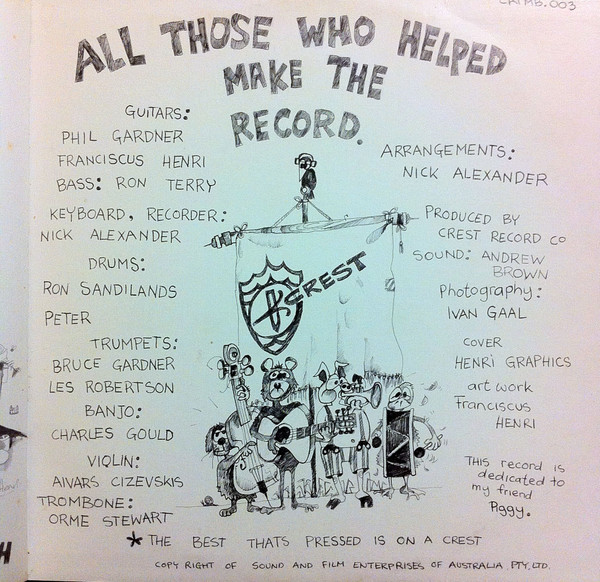 CAT MB.003
ALL THOSE WHO HELPED
MAKE THE
RECORD.
GUITARS:
PHIL GARDNER
FRANCISCUS HENRI
BASS: RON TERRY
KEYBOARD, RECORDER:
NICK ALEXANDER
DRUMS:
RON SANDILANDS
PETER
TRUMPETS:
BRUCE GARDNER
LES ROBERTSON
BANJO:
CHARLES GOULD
VIOLIN:
AIVARS CIZEVSKIS
TROMBONE:
ORME STEWART
CREST
ARRANGEMENTS:
NICK ALEXANDER
PRODUCED BY
CREST RECORD CO
SOUND: ANDREW
BROWN
Photography:
IVAN GAAL
COVER
HENRI GRAPHICS
art work
Franciscus
HENRI
THIS record is
dedicated to
my friend
Piggy.
* THE BEST THATS PRESSED IS ON A CREST
COPY RIGHT OF SOUND AND FILM ENTERPRISES OF AUSTRALIA PTY. LTD.